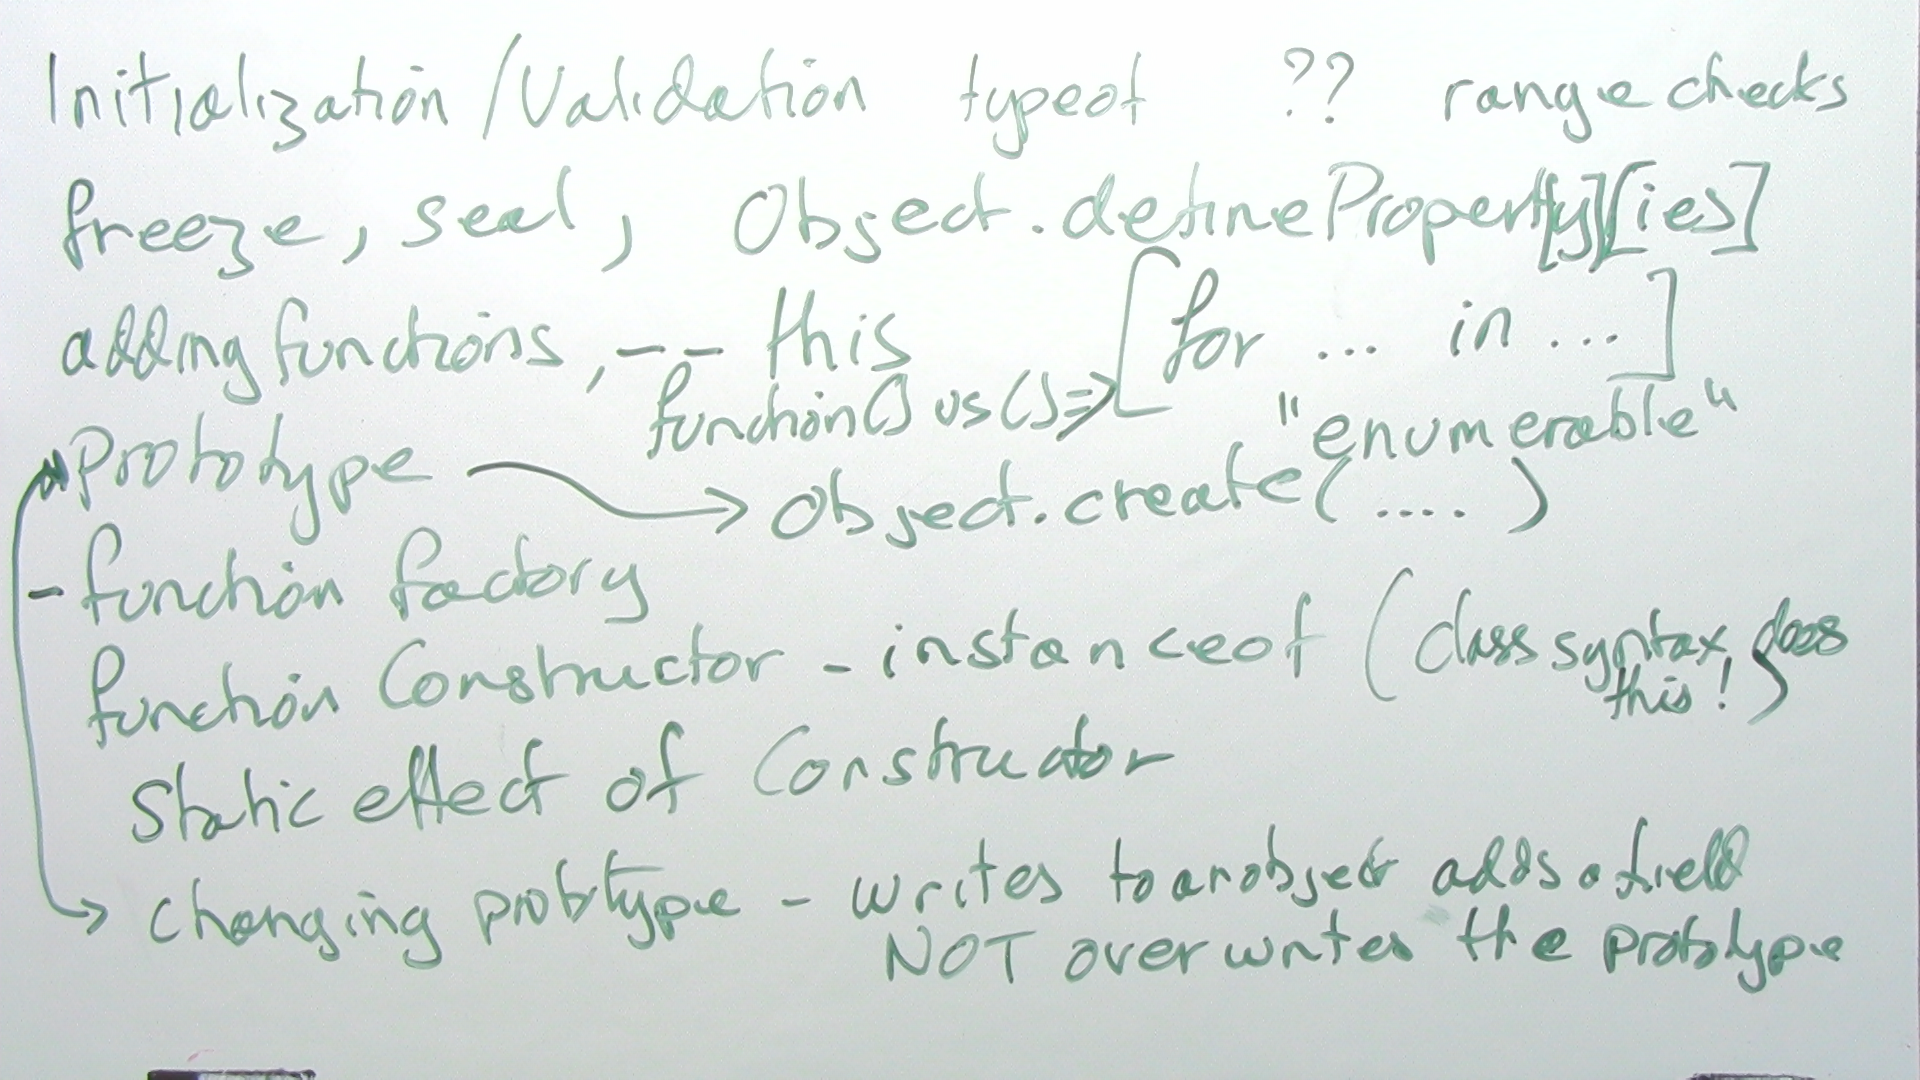 Initialization / Validation typeof ?? range checks
freeze, seal, Object.defineProperty[y][ies]
adding functions, -- this [for ... in ...]
function() vs () => "enumerable"
Prototype → Object.create(....)
- function factory
function Constructor - instanceof (class syntax does this!)
Static effect of Constructor
→ changing prototype - writes to an object adds a field
NOT overwrites the prototype